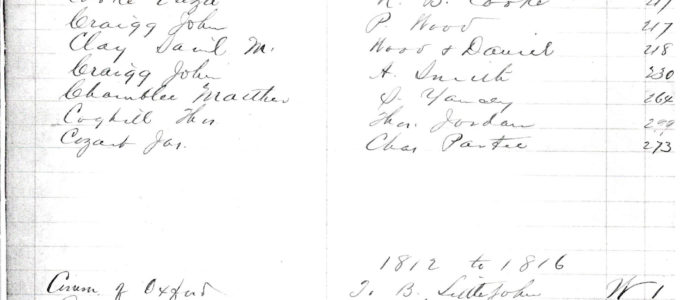 Cooke W. B. Cooke 217
Craigg John P. Wood 217
Clay David M. Wood & Daniel 218
Craigg John A. Smith 230
Chamblee Matthew S. Yancey 264
Coghill Thos Thos. Jordan 299
Cozart Jas. Chas Partee 273
1812 to 1816
Comm. of Oxford T. B. Littlejohn W 1